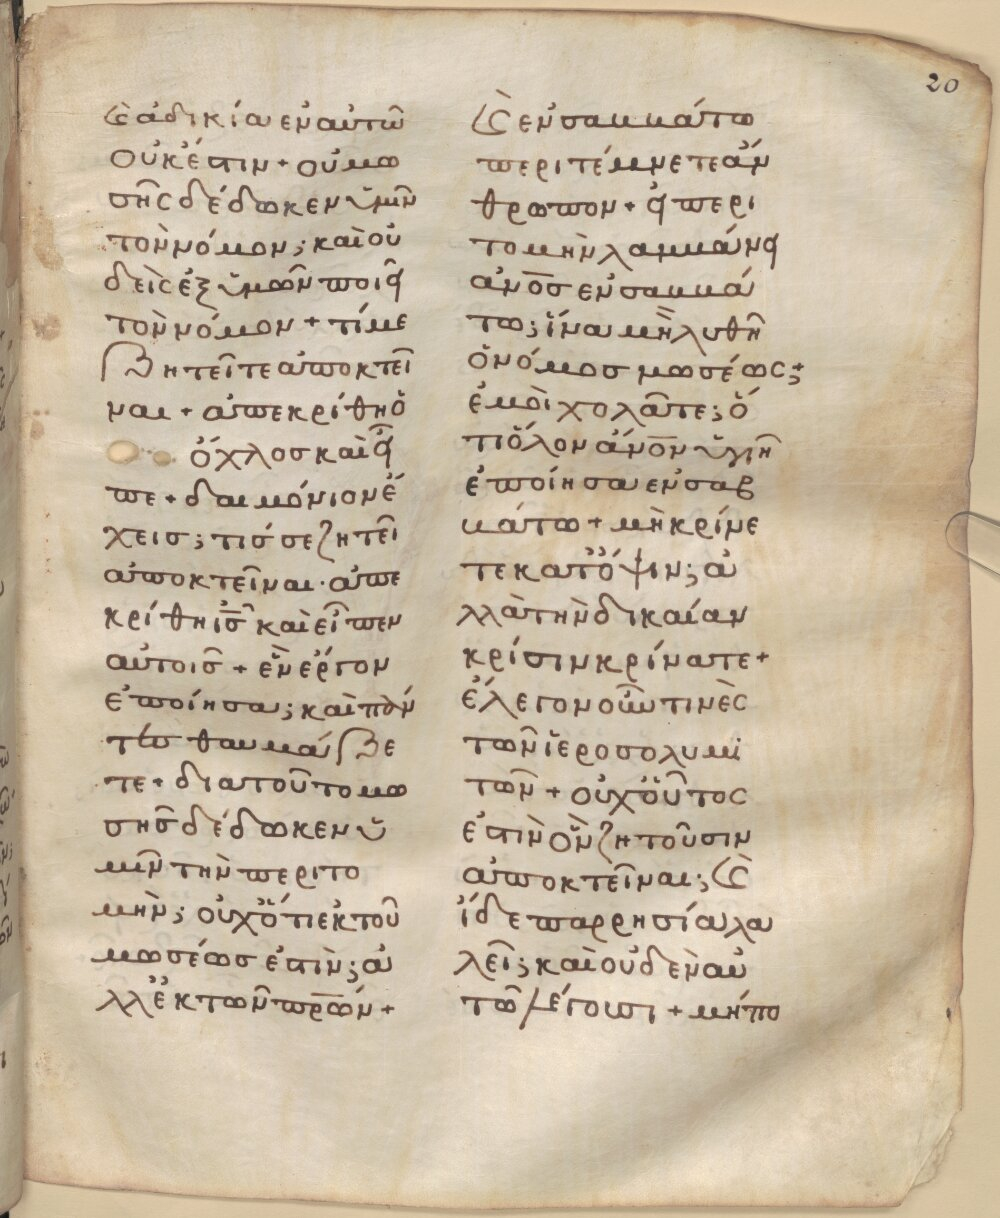 20
Ϗ ἀδικία ἐν αὐτῶ
οὐκ ἔστιν + οὐ μω
σῆς δέδωκεν ὑμῖν
τὸν νόμον ; καὶ οὐ
δεὶς ἐξ ὑμῶν ποιεῖ
τὸν νόμον + τί με
ζητεῖτε ἀποκτεῖ
ναι + ἀπεκρίθη ὁ
ὄχλος καὶ εἶ
πε + δαιμόνιον ἔ
χεις ; τίς σε ζητεῖ
ἀποκτεῖναι · ἀπε
κρίθη ις̅ καὶ εἶπεν
αὐτοις + ἓν ἔργον
ἐποίησα ; καὶ πάν
τες θαυμάζε
τε + διατοῦτο μω
σῆς δέδωκεν ὑ
μῖν τὴν περιτο
μήν ; οὐχ ὅτι ἐκ τοῦ
μωσέως ἐστὶν ; ἀ
λλ ἐκ τῶν πρ̅ων +
Ϗ ἐν σαββάτω
περιτέμνετε ἄν
θρωπον + εἰ περι
τομὴν λαμβάνει
ανο̅ς ἐν σαββά
τω ; ἵνα μὴ λυθῆ
ὁ νόμος μωσέως ; +
ἐμοὶ χολᾶτε ; ὅ
τι ὅλον ανο̅ν ὑγιῆ
ἐποίησα ἐν σαβ
βάτω + μὴ κρίνε
τε κατ ὄψιν ; ἀ
λλὰ τὴν δικαίαν
κρίσιν κρίνατε +
ἔλεγον οὖν τινὲς
τῶν ἱεροσολυμι
τῶν + οὐχ οὗτος
ἐστὶν ὃν ζητοῦσιν
ἀποκτεῖναι ; Ϗ
ἴδε παρρησία λα
λεῖ ; καὶ οὐδὲν αὐ
τῶ λέγουσι + μήπο